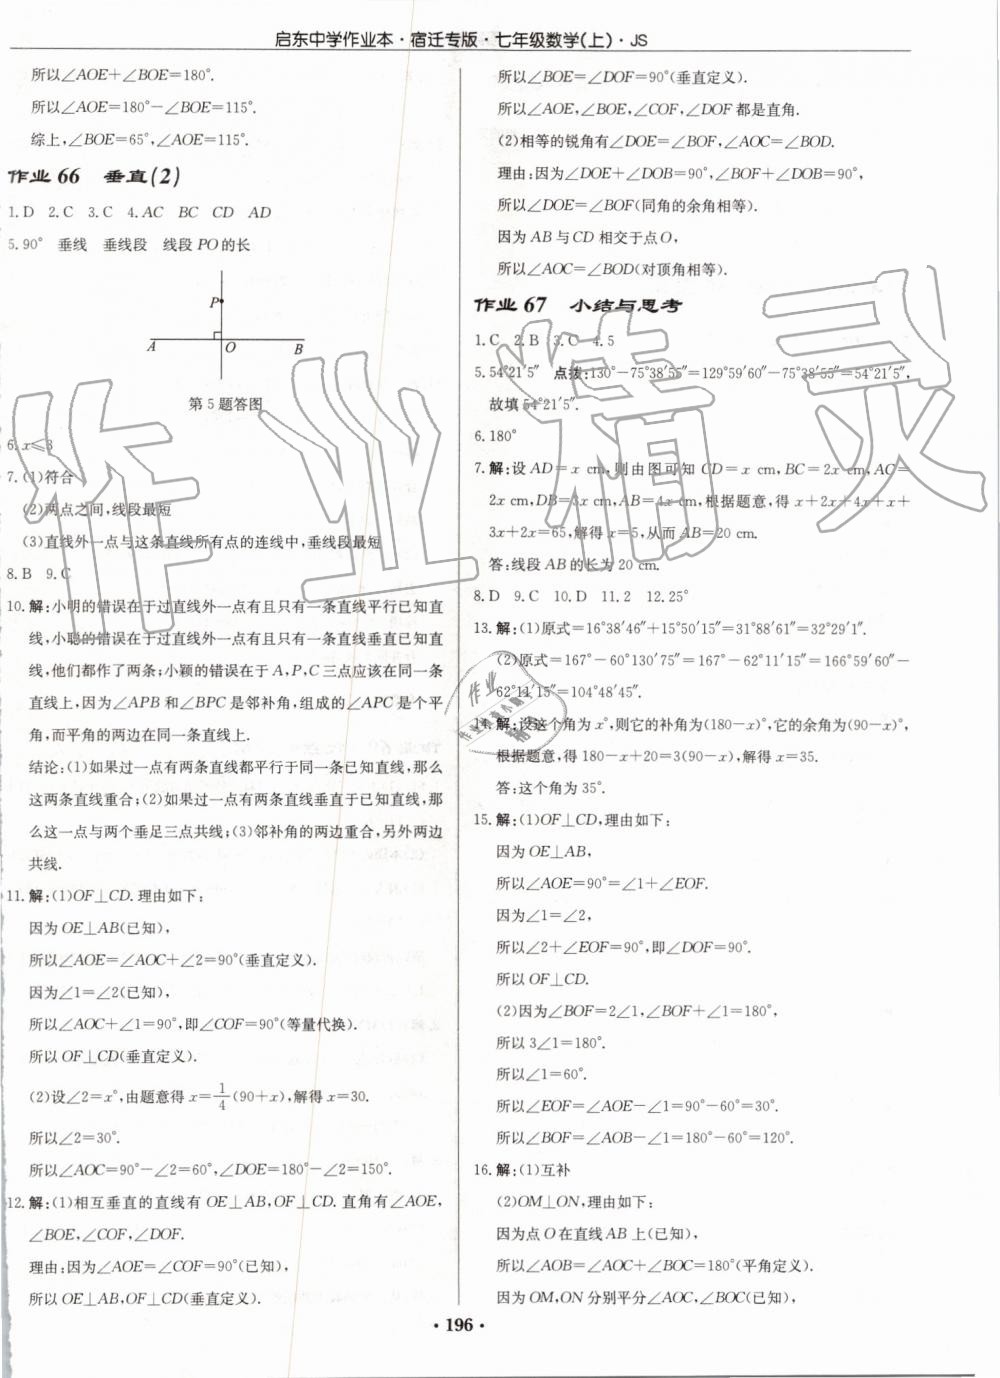 启东中学作业本·宿迁专版·七年级数学(上)·JS
所以∠AOE+∠BOE=180°.
所以∠AOE=180°-∠BOE=115°.
综上,∠BOE=65°,∠AOE=115°.
作业 66 垂直(2)
1. D 2. C 3. C 4. AC BC CD AD
5. 90° 垂线 垂线段 线段 PO 的长
P
A O B
第 5 题答图
6. x≤3
7. (1)符合
(2)两点之间,线段最短
(3)直线外一点与这条直线所有点的连线中,垂线段最短
8. B 9. C
10. 解:小明的错误在于过直线外一点有且只有一条直线平行已知直
线,小聪的错误在于过直线外一点有且只有一条直线垂直已知直
线,他们都作了两条;小颖的错误在于 A,P,C 三点应该在同一条
直线上,因为∠APB 和∠BPC 是邻补角,组成的∠APC 是个平
角,而平角的两边在同一条直线上.
结论:(1)如果过一点有两条直线都平行于同一条已知直线,那么
这两条直线重合;(2)如果过一点有两条直线垂直于已知直线,那
么这一点与两个垂足三点共线;(3)邻补角的两边重合,另外两边
共线.
11. 解:(1)OF⊥CD. 理由如下:
因为 OE⊥AB(已知),
所以∠AOE=∠AOC+∠2=90°(垂直定义).
因为∠1=∠2(已知),
所以∠AOC+∠1=90°,即∠COF=90°(等量代换).
所以 OF⊥CD(垂直定义).
(2)设∠2=x°,由题意得 x=1/4(90+x),解得 x=30.
所以∠2=30°.
所以∠AOC=90°-∠2=60°,∠DOE=180°-∠2=150°.
12. 解:(1)相互垂直的直线有 OE⊥AB,OF⊥CD. 直角有∠AOE,
∠BOE,∠COF,∠DOF.
理由:因为∠AOE=∠COF=90°(已知),
所以 OE⊥AB,OF⊥CD(垂直定义).
所以∠BOE=∠DOF=90°(垂直定义).
所以∠AOE,∠BOE,∠COF,∠DOF 都是直角.
(2)相等的锐角有∠DOE=∠BOF,∠AOC=∠BOD.
理由:因为∠DOE+∠DOB=90°,∠BOF+∠DOB=90°,
所以∠DOE=∠BOF(同角的余角相等).
因为 AB 与 CD 相交于点 O,
所以∠AOC=∠BOD(对顶角相等).
作业 67 小结与思考
1. C 2. B 3. C 4. 5
5. 54°21′5″ 点拨:130°-75°38′55″=129°59′60″-75°38′55″=54°21′5″.
故填 54°21′5″.
6. 180°
7. 解:设 AD=x cm,则由图可知 CD=x cm,BC=2x cm,AC=
2x cm,DB=3x cm,AB=4x cm,根据题意,得 x+2x+4x+x+
3x+2x=65,解得 x=5,从而 AB=20 cm.
答:线段 AB 的长为 20 cm.
8. D 9. C 10. D 11. 2 12. 25°
13. 解:(1)原式=16°38′46″+15°50′15″=31°88′61″=32°29′1″.
(2)原式=167°-60°130′75″=167°-62°11′15″=166°59′60″-
62°11′15″=104°48′45″.
14. 解:设这个角为 x°,则它的补角为(180-x)°,它的余角为(90-x)°,
根据题意,得 180-x+20=3(90-x),解得 x=35.
答:这个角为 35°.
15. 解:(1)OF⊥CD,理由如下:
因为 OE⊥AB,
所以∠AOE=90°=∠1+∠EOF.
因为∠1=∠2,
所以∠2+∠EOF=90°,即∠DOF=90°.
所以 OF⊥CD.
(2)因为∠BOF=2∠1,∠BOF+∠1=180°,
所以 3∠1=180°.
所以∠1=60°.
所以∠EOF=∠AOE-∠1=90°-60°=30°.
所以∠BOF=∠AOB-∠1=180°-60°=120°.
16. 解:(1)互补
(2)OM⊥ON,理由如下:
因为点 O 在直线 AB 上(已知),
所以∠AOB=∠AOC+∠BOC=180°(平角定义).
因为 OM,ON 分别平分∠AOC,∠BOC(已知),
·196·
作业精灵